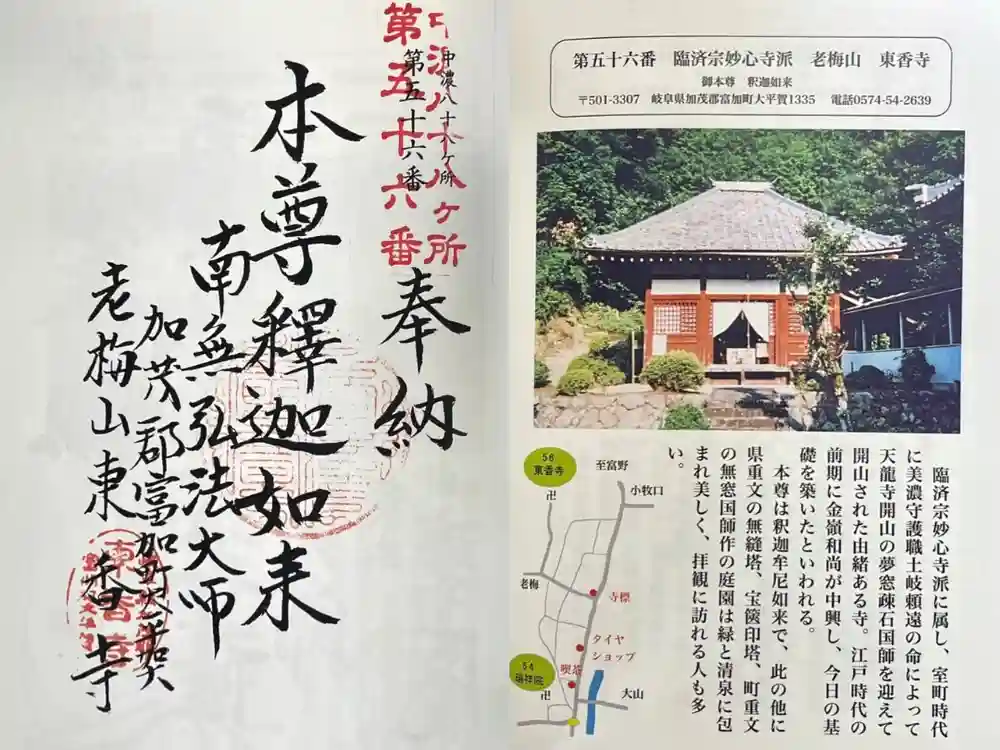 中濃八十八ヶ所
第五十六番
中濃八十八ヶ所
第五十六番
奉納
本尊釋迦如来
南無弘法大師
加茂郡富加町大平賀
老梅山東香寺
東香寺
第五十六番 臨済宗妙心寺派 老梅山 東香寺
御本尊 釈迦如来
〒501-3307 岐阜県加茂郡富加町大平賀1335 電話0574-54-2639
臨済宗妙心寺派に属し、室町時代
に美濃守護職土岐頼遠の命によって
天龍寺開山の夢窓疎石国師を迎えて
開山された由緒ある寺。江戸時代の
前期に金嶺和尚が中興し、今日の基
礎を築いたといわれる。
本尊は釈迦牟尼如来で、此の他に
県重文の無縫塔、宝篋印塔、町重文
の無窓国師作の庭園は緑と清泉に包
まれ美しく、拝観に訪れる人も多
い。
56
東香寺
卍
至富野
小牧口
老梅
寺標
タイヤ
ショップ
喫茶
54
瑞祥院
卍
大山